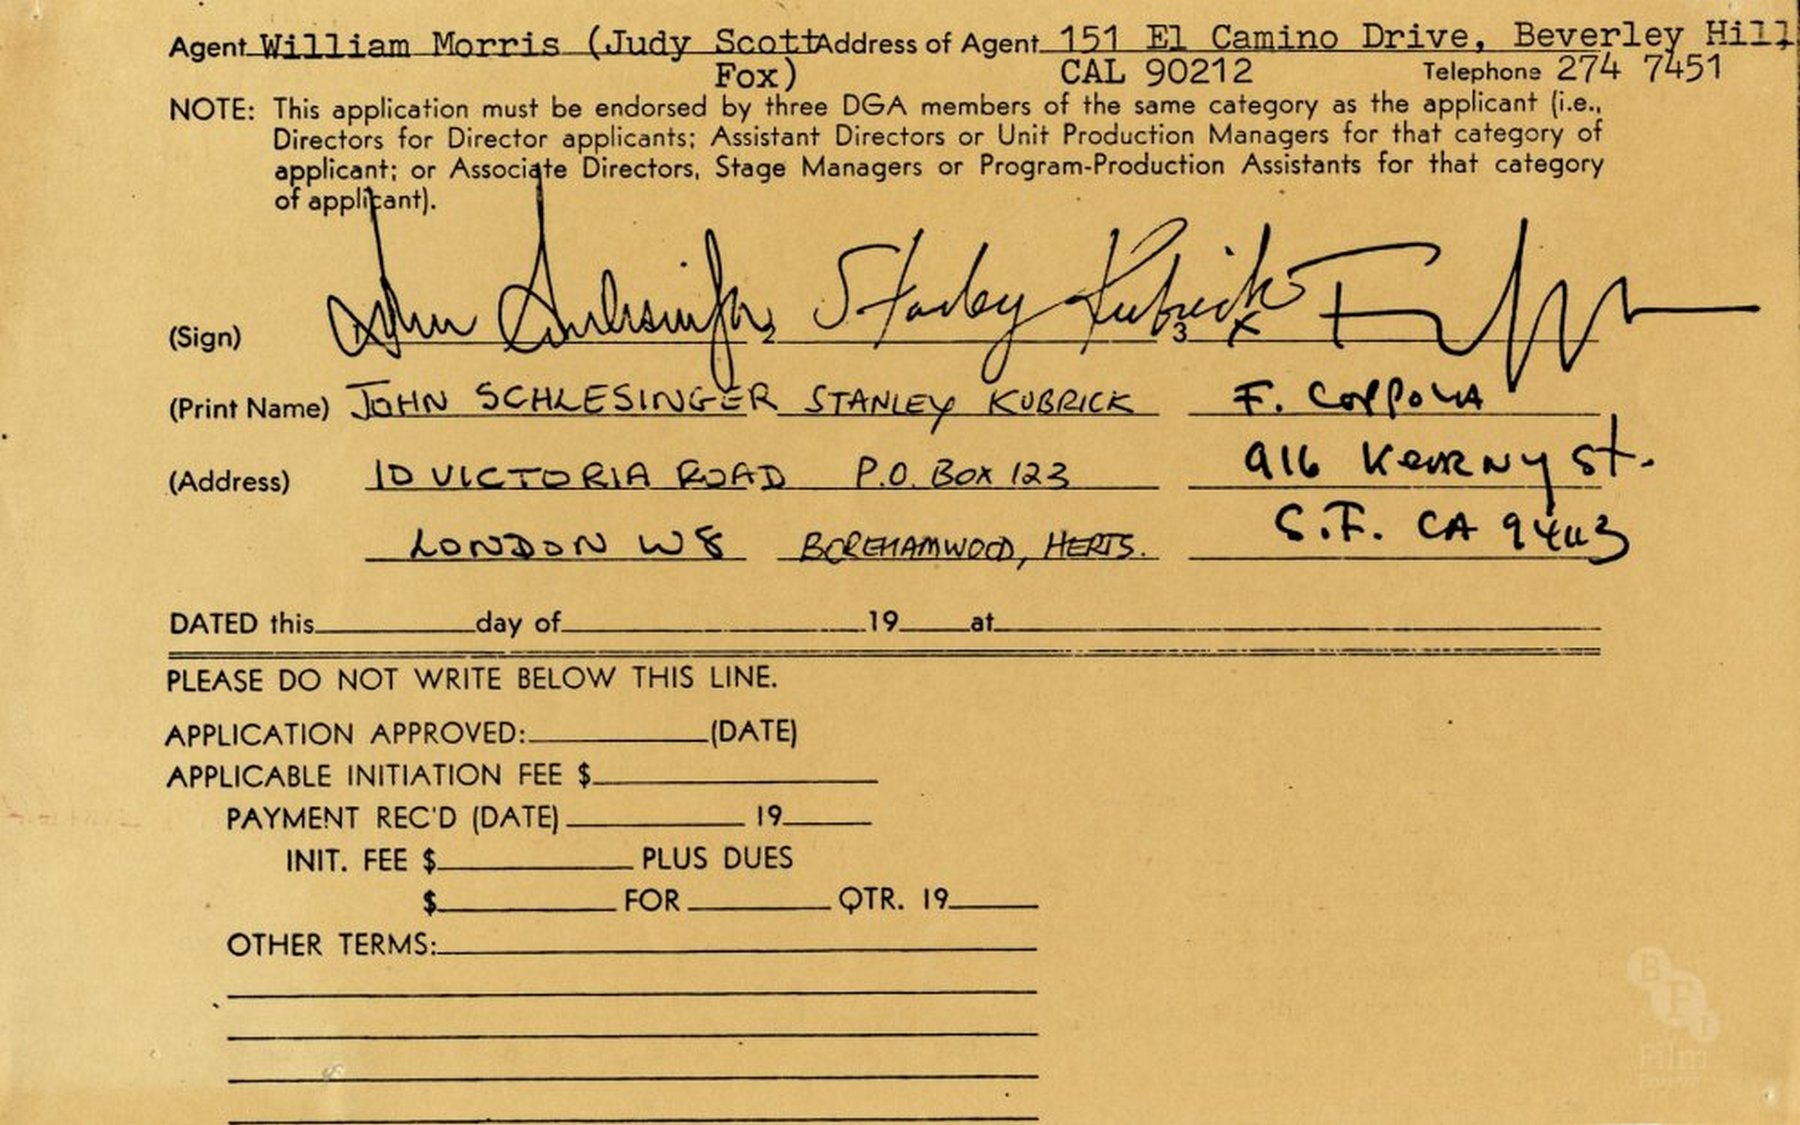 Agent William Morris (Judy Scott Address of Agent 151 El Camino Drive, Beverley Hill
Fox) CAL 90212 Telephone 274 7451
NOTE: This application must be endorsed by three DGA members of the same category as the applicant (i.e.,
Directors for Director applicants; Assistant Directors or Unit Production Managers for that category of
applicant; or Associate Directors, Stage Managers or Program-Production Assistants for that category
of applicant).
(Sign) John Schlesinger 2 Stanley Kubrick 3 x
(Print Name) JOHN SCHLESINGER STANLEY KUBRICK F. COPPOLA
(Address) 10 VICTORIA ROAD P.O. BOX 123 916 KEARNY St.
LONDON W8 BOREHAMWOOD, HERTS. S.F. CA 94113
DATED this day of 19 at
PLEASE DO NOT WRITE BELOW THIS LINE.
APPLICATION APPROVED: (DATE)
APPLICABLE INITIATION FEE $
PAYMENT REC'D (DATE) 19
INIT. FEE $ PLUS DUES
$ FOR QTR. 19
OTHER TERMS:
BFI
Film